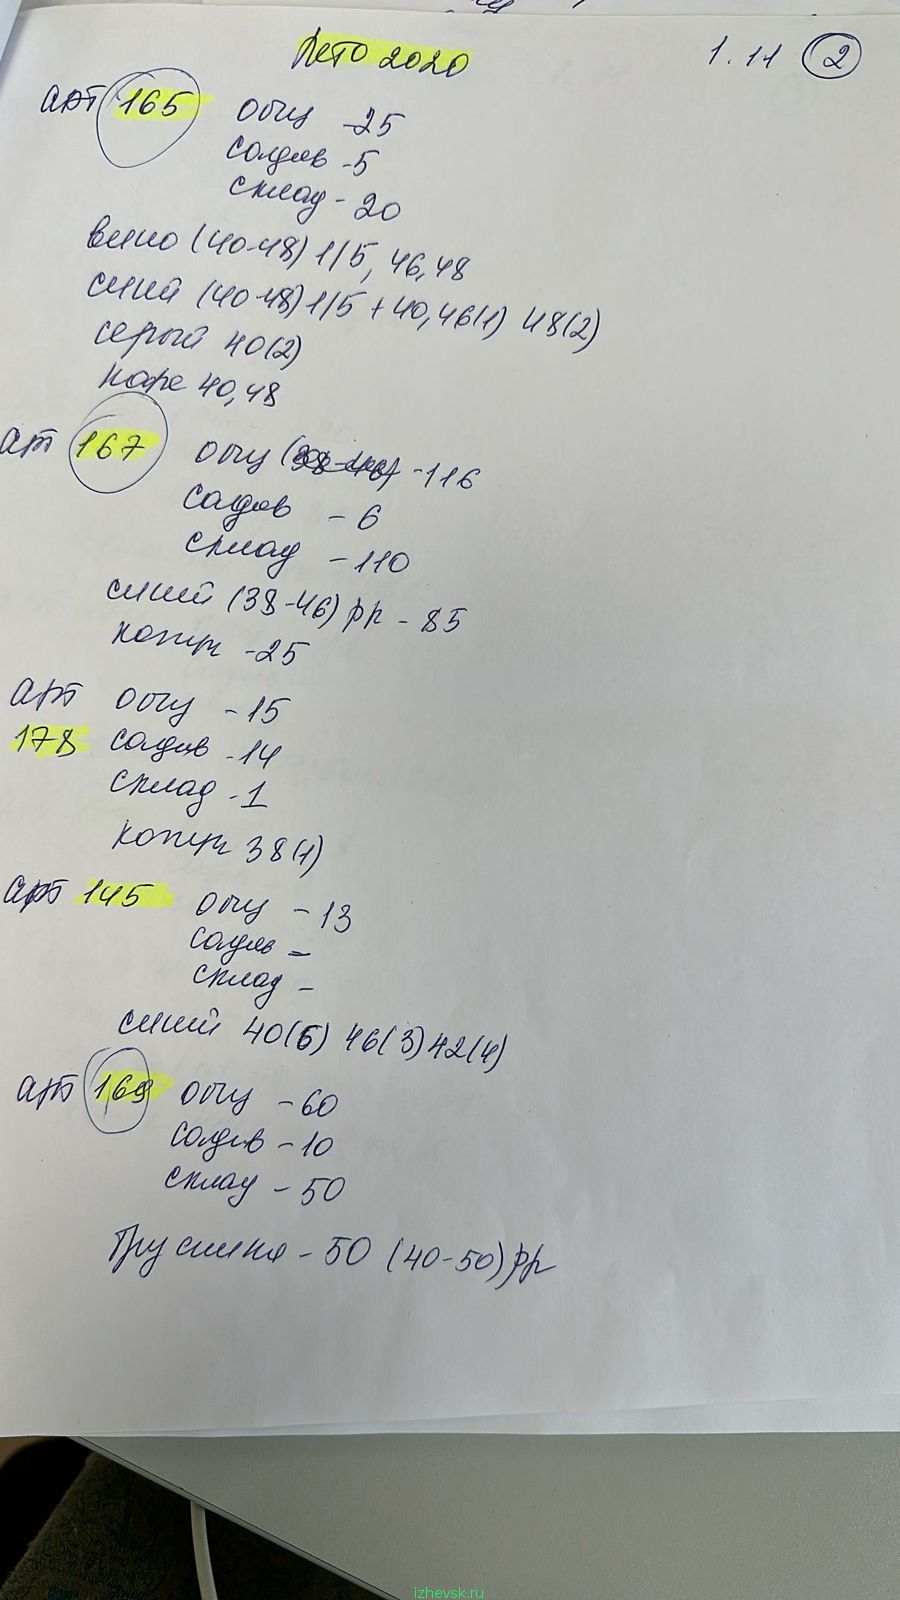 Лето 2020
1.11 (2)
арт 165 общ -25
садов -5
склад - 20
вино (40-48) 1/5, 46,48
синий (40-48) 1/5 + 40,46(1) 48(2)
серый 40(2)
каре 40,48
арт 167 общ (38-48) -116
садов - 6
склад - 110
синий (38-46) рр - 85
капуч - 25
арт общ - 15
178 садов - 14
склад - 1
капуч 38(1)
арт 145 общ - 13
садов =
склад -
синий 40(6) 46(3) 42(4)
арт 169 общ - 60
садов - 10
склад - 50
Брусника - 50 (40-50) рр
izhevsk.ru